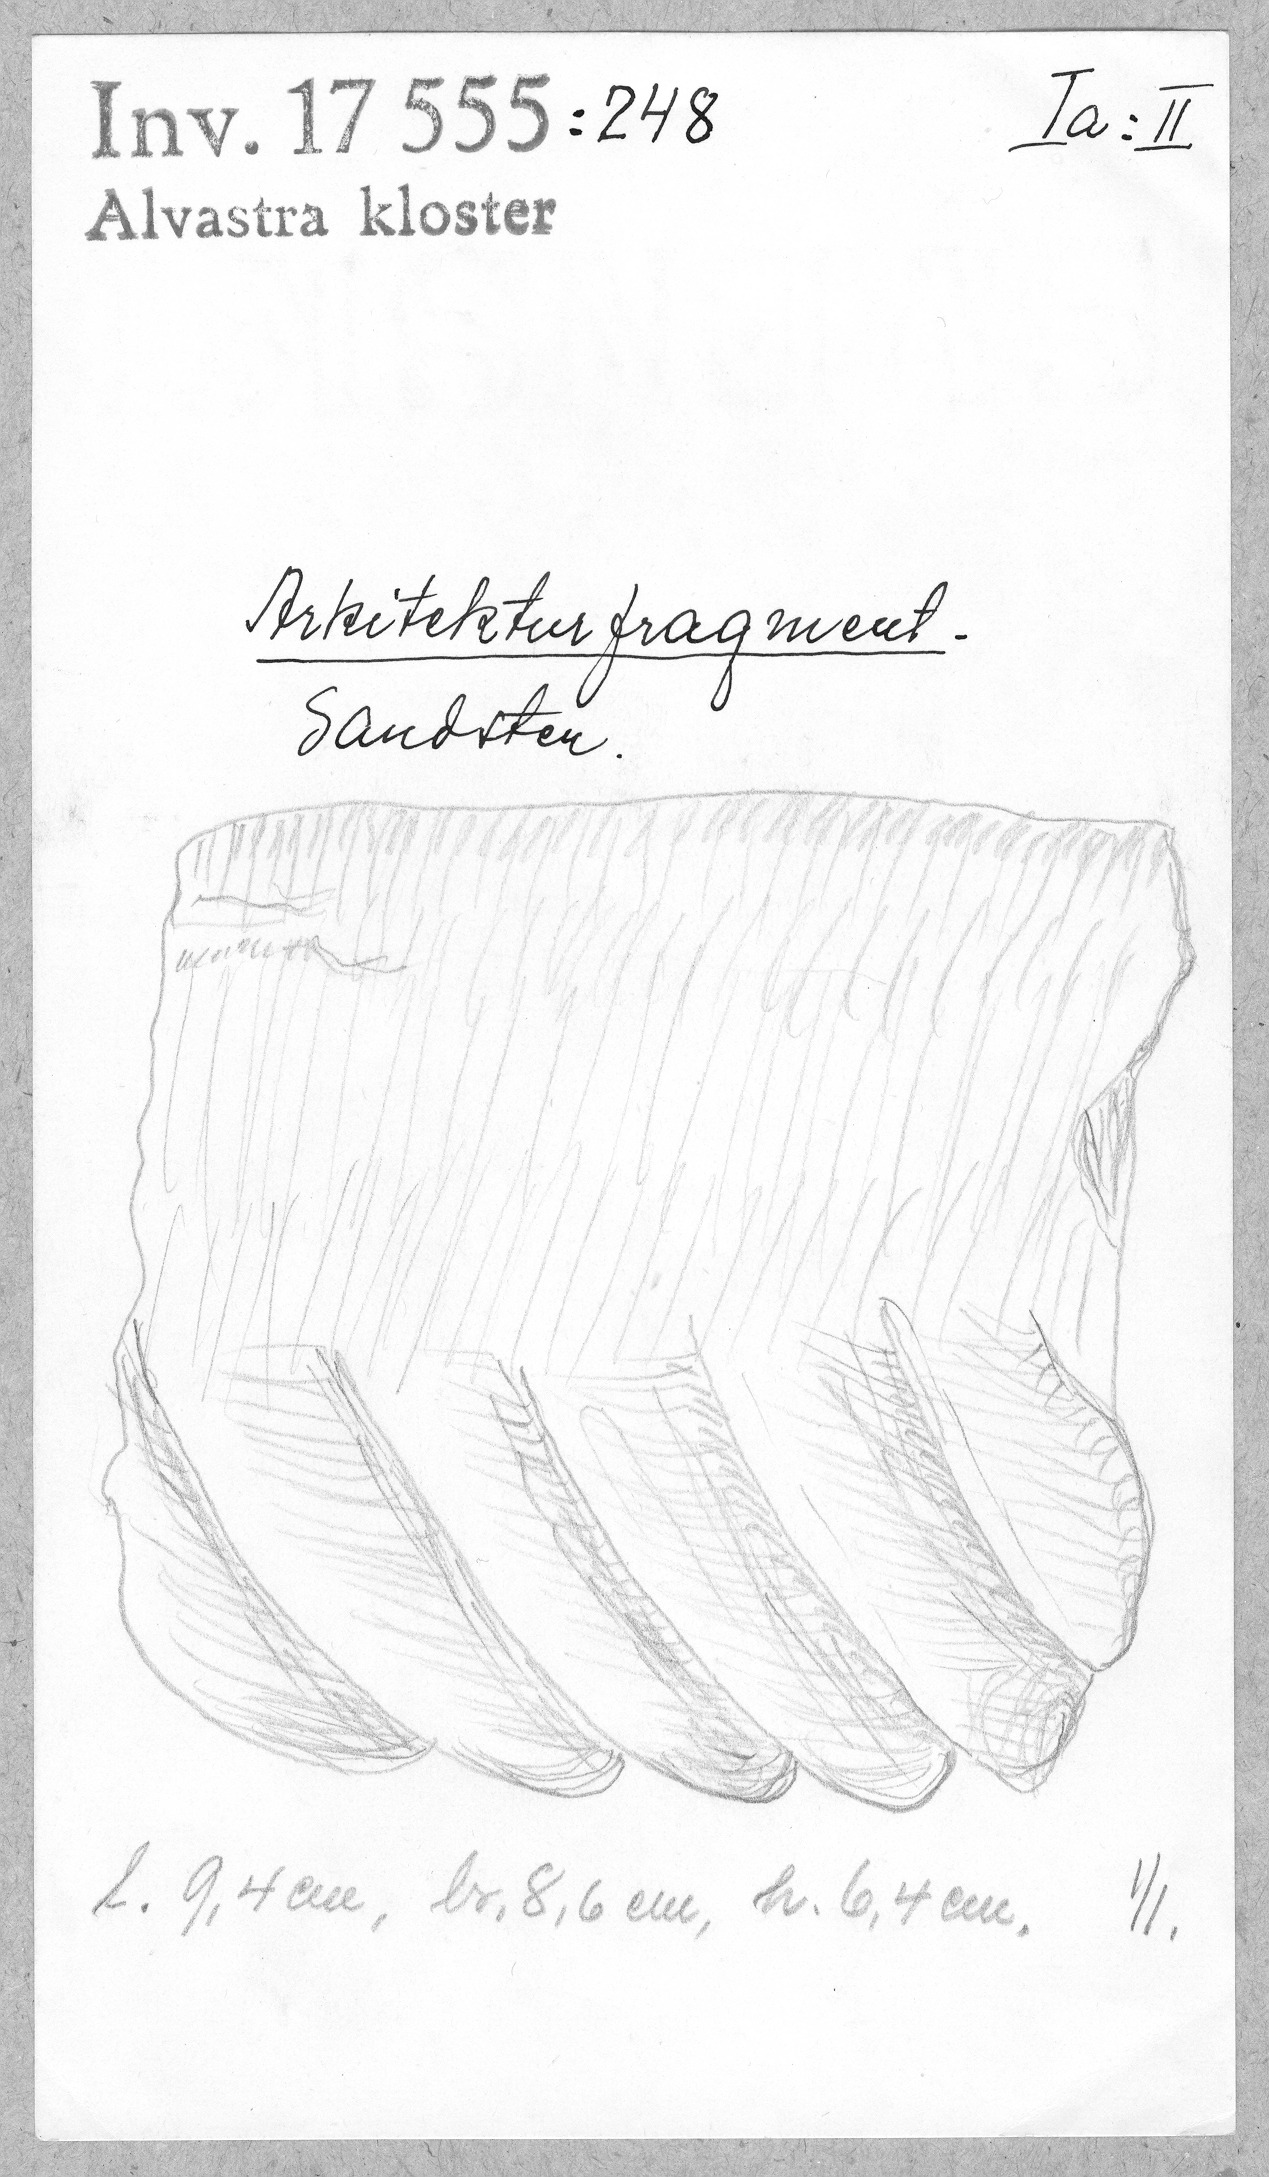 Inv. 17 555:248
Ia:II
Alvastra kloster
Arkitekturfragment.
Sandsten.
l. 9,4 cm, br. 8,6 cm, h. 6,4 cm. 1/1.